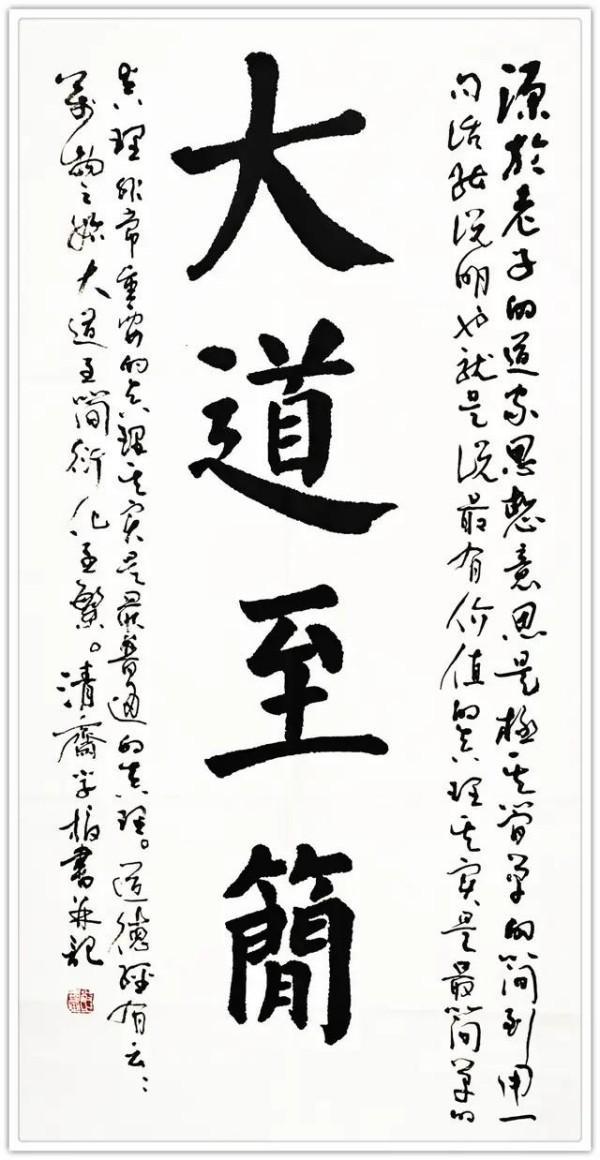 源於老子的道家思想意思是極其簡单的簡到用一
句话能说明也就是说最有价值的真理其实是最簡单的
大道至簡
真理非常重要的真理其实是最普通的真理。道德經有云：
萬物之始大道至簡衍化至繁。清齋学書并記